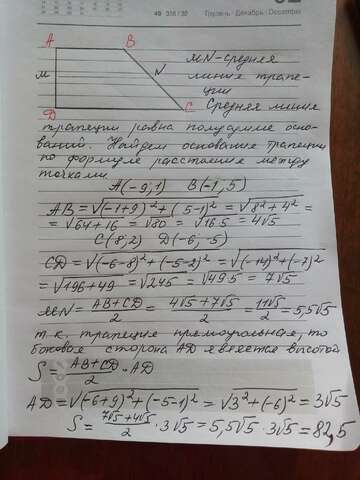 49 336/30 Грудень · Декабрь | December
A B
MN-средняя
M N
линия трапе-
ции
D C
Средняя линия
трапеции равна полусумме осно-
ваний. Найдем основания трапеции
по формуле расстояние между
точками
A(-9,1) B(-1,5)
AB = √(-1+9)² + (5-1)² = √8²+4² =
= √64+16 = √80 = √16·5 = 4√5
C(8;2) D(-6;-5)
CD = √(-6-8)² + (-5-2)² = √(-14)² + (-7)² =
= √196+49 = √245 = √49·5 = 7√5
MN = AB+CD/2 = 4√5+7√5/2 = 11√5/2 = 5,5√5
т.к. трапеция прямоугольная, то
боковая сторона AD является высотой
S = AB+CD/2 · AD
AD = √(-6+9)² + (-5-1)² = √3²+(-6)² = 3√5
S = 7√5+4√5/2 · 3√5 = 5,5√5 · 3√5 = 82,5